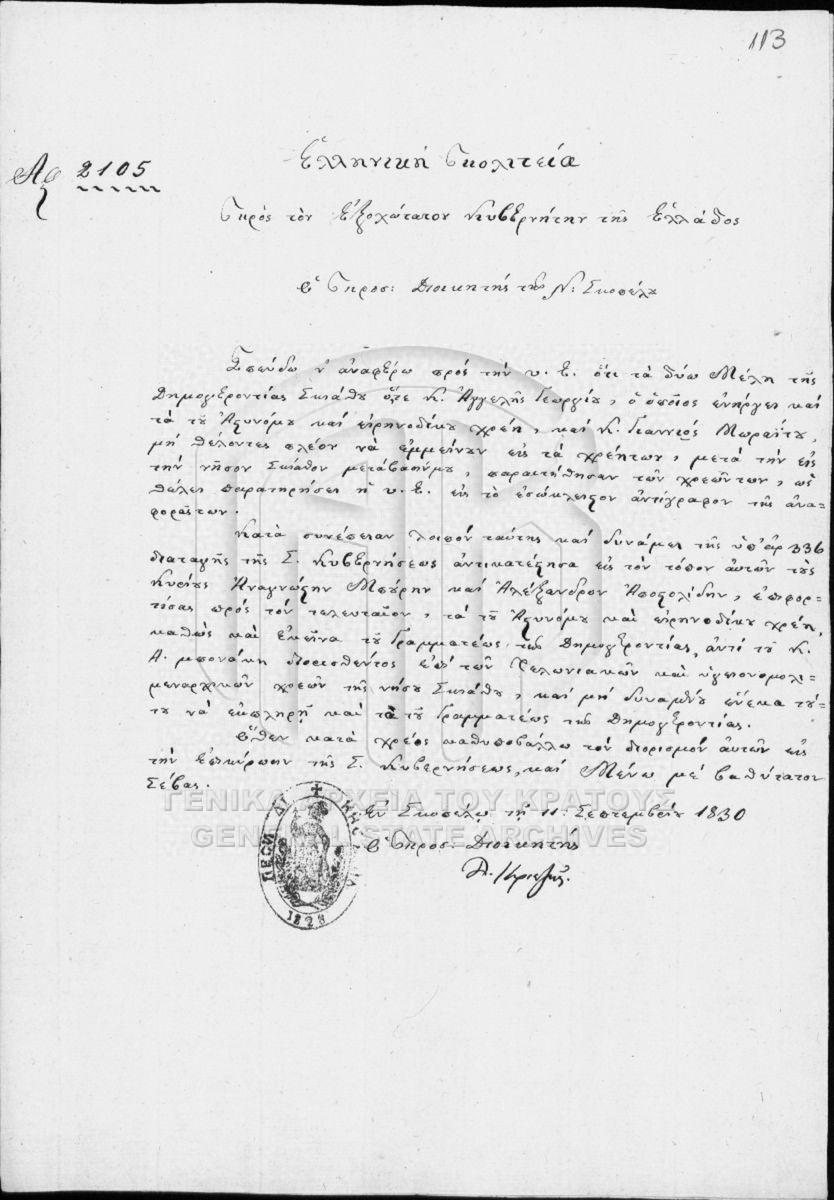 113
Αρ 2105
Ἑλληνικὴ Πολιτεία
Πρὸς τὸν Ἐξοχώτατον Κυβερνήτην τῆς Ἑλλάδος
Ὁ Προσ: Διοικητὴς τῶν Ν: Σκοπέλου
Σπεύδω ν' ἀναφέρω πρὸς τὴν υ. Ε. ὅτι τὰ δύω Μέλη τῆς
Δημογεροντίας Σκιάθου ὅτε Κ. Ἀγγελῆς Γεωργίου, ὁ ὁποῖος ἐνήργει καὶ
τὰ τοῦ Ἀστυνόμου καὶ εἰρηνοδίκου χρέη, καὶ Κ. Γιαννιὸς Μωραΐτου,
μὴ θέλοντες πλέον νὰ ἐμμείνουν εἰς τὰ χρέητων, μετὰ τὴν εἰς
τὴν νῆσον Σκίαθον μετάβασίνμου, παραιτήθησαν τῶν χρεῶντων, ὡς
θέλει παρατηρήσει ἡ υ. Ε. εἰς τὸ ἐσώκλειστον ἀντίγραφον τῆς ἀνα-
φορᾶςτων.
Κατὰ συνέπειαν λοιπὸν ταύτης καὶ δυνάμει τῆς ὑπ' ἀρ 336
διαταγῆς τῆς Σ. Κυβερνήσεως ἀντικατέστησα εἰς τὸν τόπον αὐτῶν τοὺς
Κυρίους Ἀναγνώστην Μπούρην καὶ Ἀλέξανδρον Ἀποστολίδην, ἐπιφορ-
τίσας πρὸς τὸν τελευταῖον, τὰ τοῦ Ἀστυνόμου καὶ εἰρηνοδίκου χρέη,
καθὼς καὶ ἐκεῖνα τοῦ Γραμματέως τῆς Δημογεροντίας, ἀντὶ τοῦ Κ.
Α. Μπονάκη διορισθέντος ἐπὶ τῶν Τελωνιακῶν καὶ ὑγειονομολι-
μεναρχικῶν χρεῶν τῆς νήσου Σκιάθου, καὶ μὴ δυναμένου ἕνεκα τού-
του νὰ ἐκπληρῇ καὶ τὰ τοῦ Γραμματέως τῆς Δημογεροντίας.
Ὅθεν κατὰ χρέος καθυποβάλλω τὸν διορισμὸν αὐτῶν εἰς
τὴν ἐπικύρωσιν τῆς Σ. Κυβερνήσεως, καὶ Μένω μὲ βαθύτατον
Σέβας.
Ἐν Σκοπέλῳ τῇ 11: Σεπτεμβρίου 1830
Ὁ Προσ: Διοικητὴς
Α. Κριεζῆς
1828
ΓΕΝΙΚΑ ΑΡΧΕΙΑ ΤΟΥ ΚΡΑΤΟΥΣ
GENERAL STATE ARCHIVES